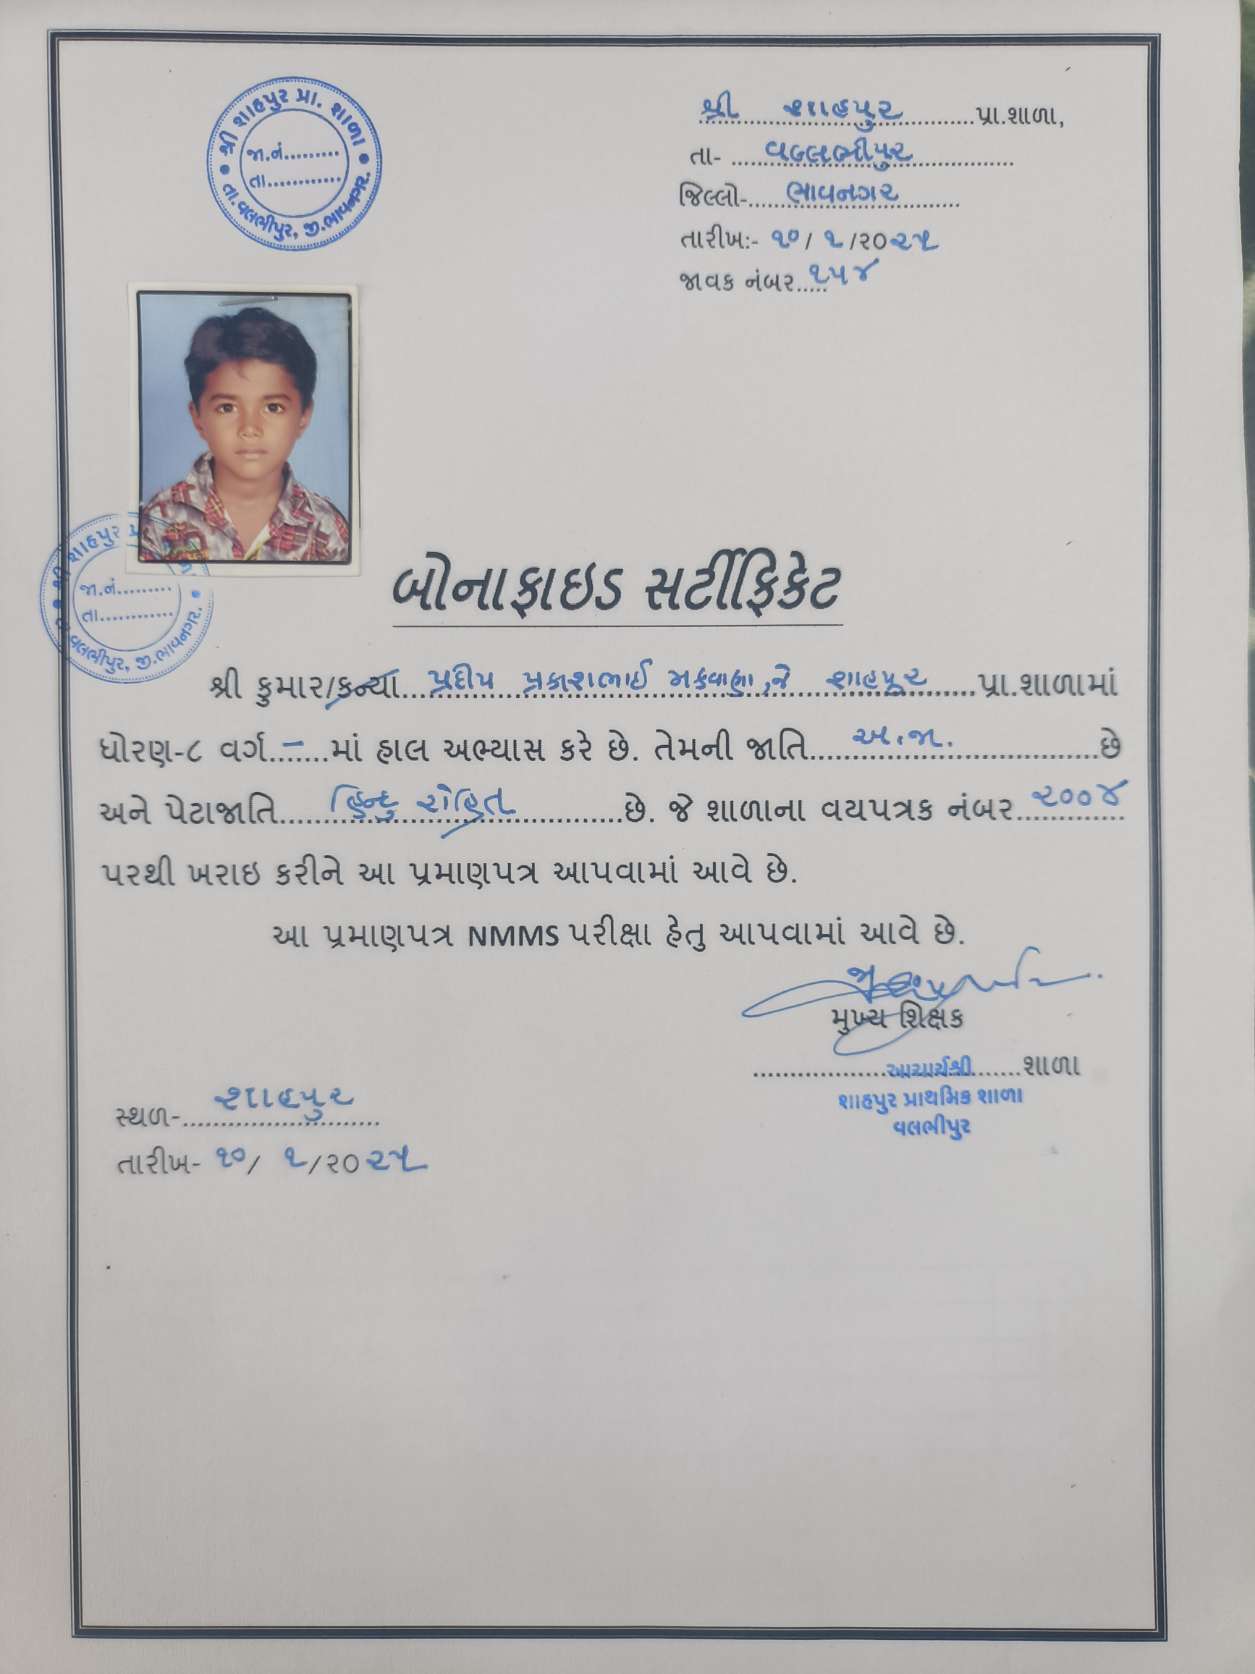 શ્રી શાહપુર પ્રા. શાળા
જા.નં..........
તા............
તા.વલભીપુર, જી.ભાવનગર.
શ્રી શાહપુર પ્રા.શાળા,
તા- વલ્લભીપુર
જિલ્લો- ભાવનગર
તારીખ:- ૧૦/ ૧ /૨૦૨૫
જાવક નંબર..... ૧૫૪
શ્રી શાહપુર પ્રા.
જા.નં..........
તા............
વલભીપુર, જી.ભાવનગર.
બોનાફાઇડ સર્ટીફિકેટ
શ્રી કુમાર/કન્યા... પ્રદીપ પ્રકાશભાઈ મકવાણા,ને શાહપુર ......પ્રા.શાળામાં
ધોરણ-૮ વર્ગ..–.....માં હાલ અભ્યાસ કરે છે. તેમની જાતિ.... અ.જા. ......છે
અને પેટાજાતિ..... હિન્દુ રોહિત ......છે. જે શાળાના વયપત્રક નંબર ૨૦૦૪
પરથી ખરાઇ કરીને આ પ્રમાણપત્ર આપવામાં આવે છે.
આ પ્રમાણપત્ર NMMS પરીક્ષા હેતુ આપવામાં આવે છે.
મુખ્ય શિક્ષક
.................આચાર્યશ્રી.......શાળા
શાહપુર પ્રાથમિક શાળા
વલભીપુર
સ્થળ- શાહપુર
તારીખ- ૧૦/ ૧/૨૦૨૫